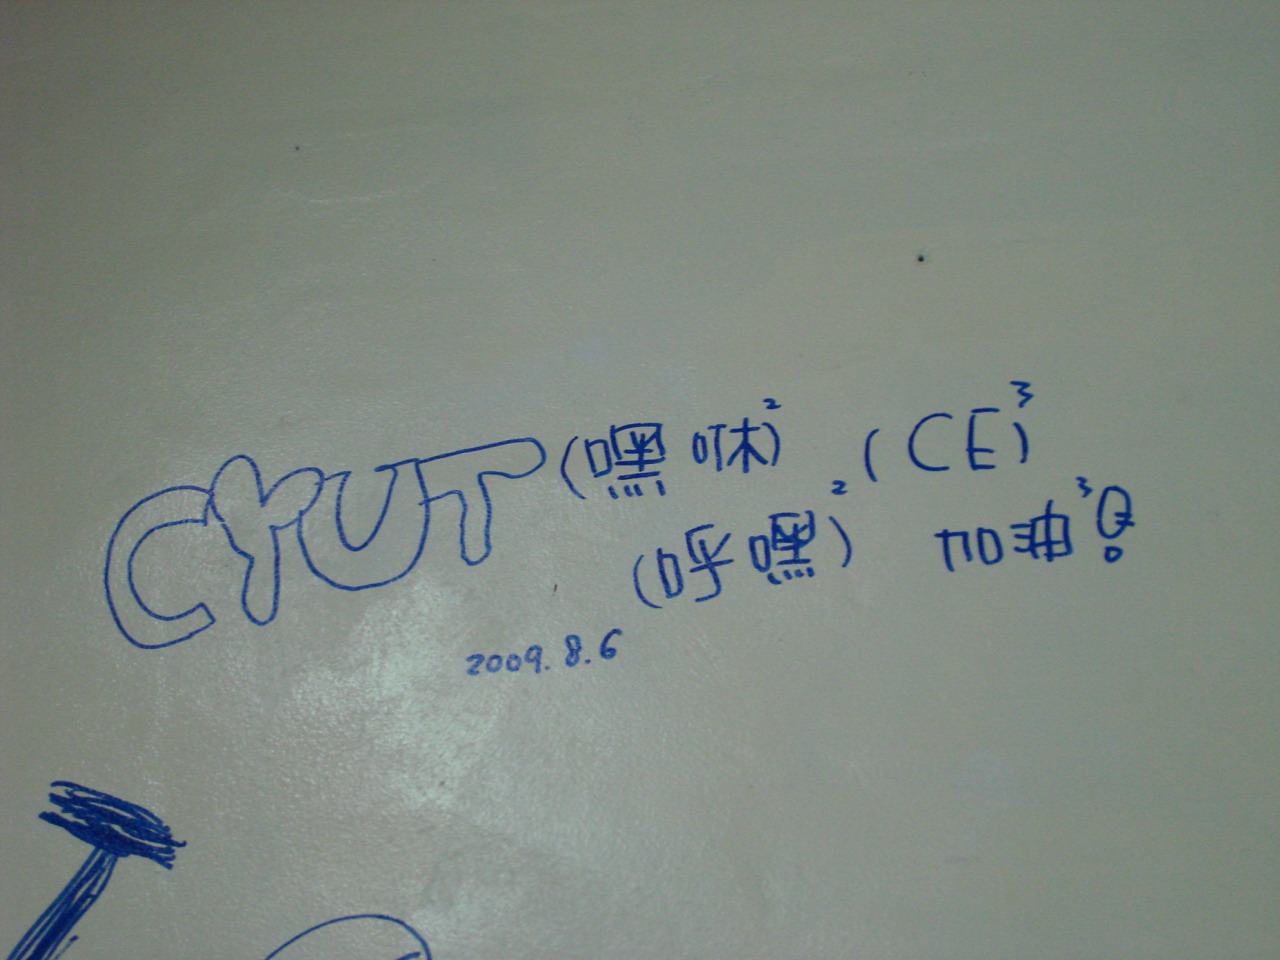 CYUT (嘿咻)² (CE)³
(呼嘿)² 加油³!
2009.8.6